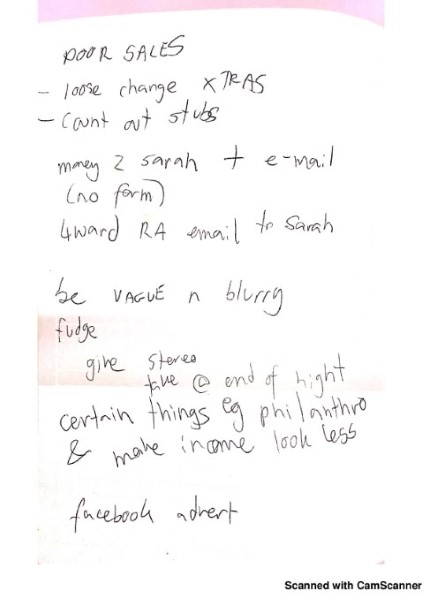 DOOR SALES
- loose change XTRAS
- Count out stubs
money 2 sarah + e-mail
(no form)
4ward RA email to Sarah
be VAGUE n blurry
fudge
give stereo
@ end of night
certain things eg philanthro
& make income look less
facebook advert
Scanned with CamScanner